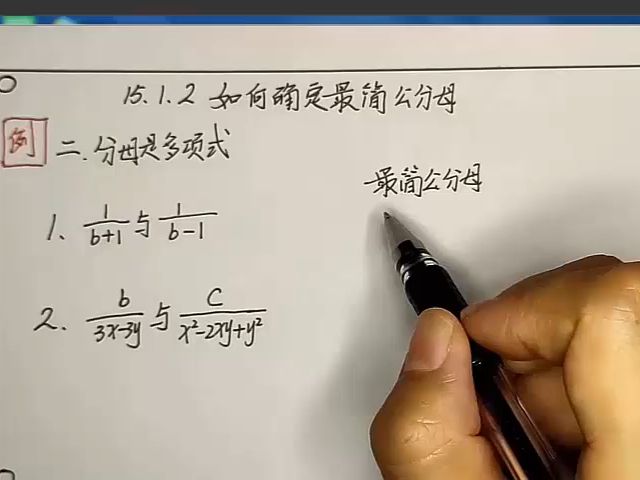 15.1.2 如何确定最简公分母
例 二.分母是多项式
最简公分母
1、 1/(b+1) 与 1/(b-1)
2. b/(3x-3y) 与 c/(x²-2xy+y²)